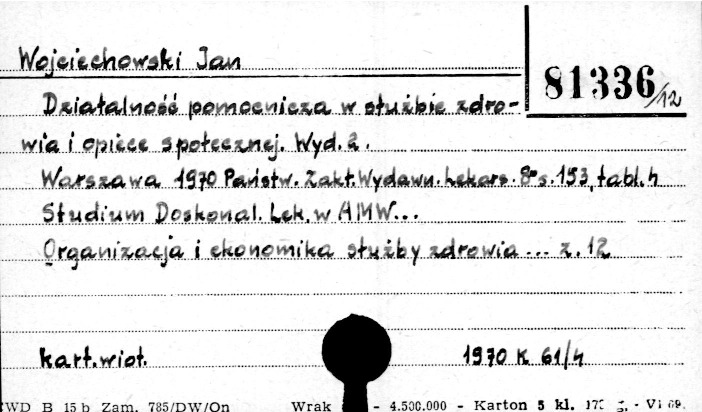 Wojciechowski Jan
81336/12
Działalność pomocnicza w służbie zdro-
wia i opiece społecznej. Wyd. 2.
Warszawa 1970 Państw. Zakł. Wydawn. Lekars. 8° s. 153, tabl. 4
Studium Doskonal. Lek. w AMW...
Organizacja i ekonomika służby zdrowia ... z. 12
kart. wiot. 1970 K 61/4
WD B 15 b Zam. 785/DW/On Wrak - 4.500.000 - Karton 5 kl. 170 g. - VI 69.